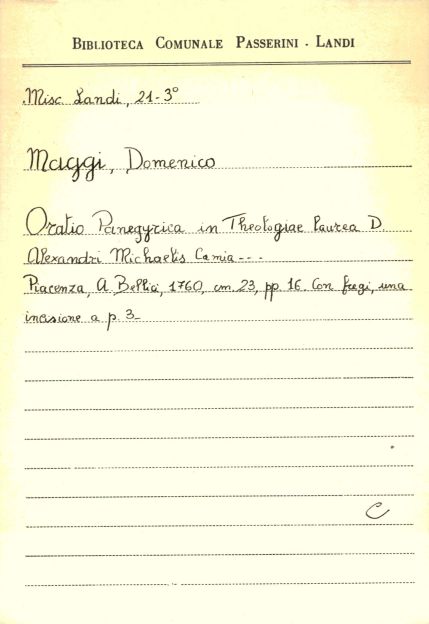 BIBLIOTECA COMUNALE PASSERINI - LANDI
Misc. Landi, 21-3°
Maggi, Domenico
Oratio Panegyrica in Theologiae laurea D.
Alexandri Michaelis Camia---
Piacenza, A. Bellici, 1760, cm. 23, pp. 16. Con fregi, una
incisione a p. 3_
C